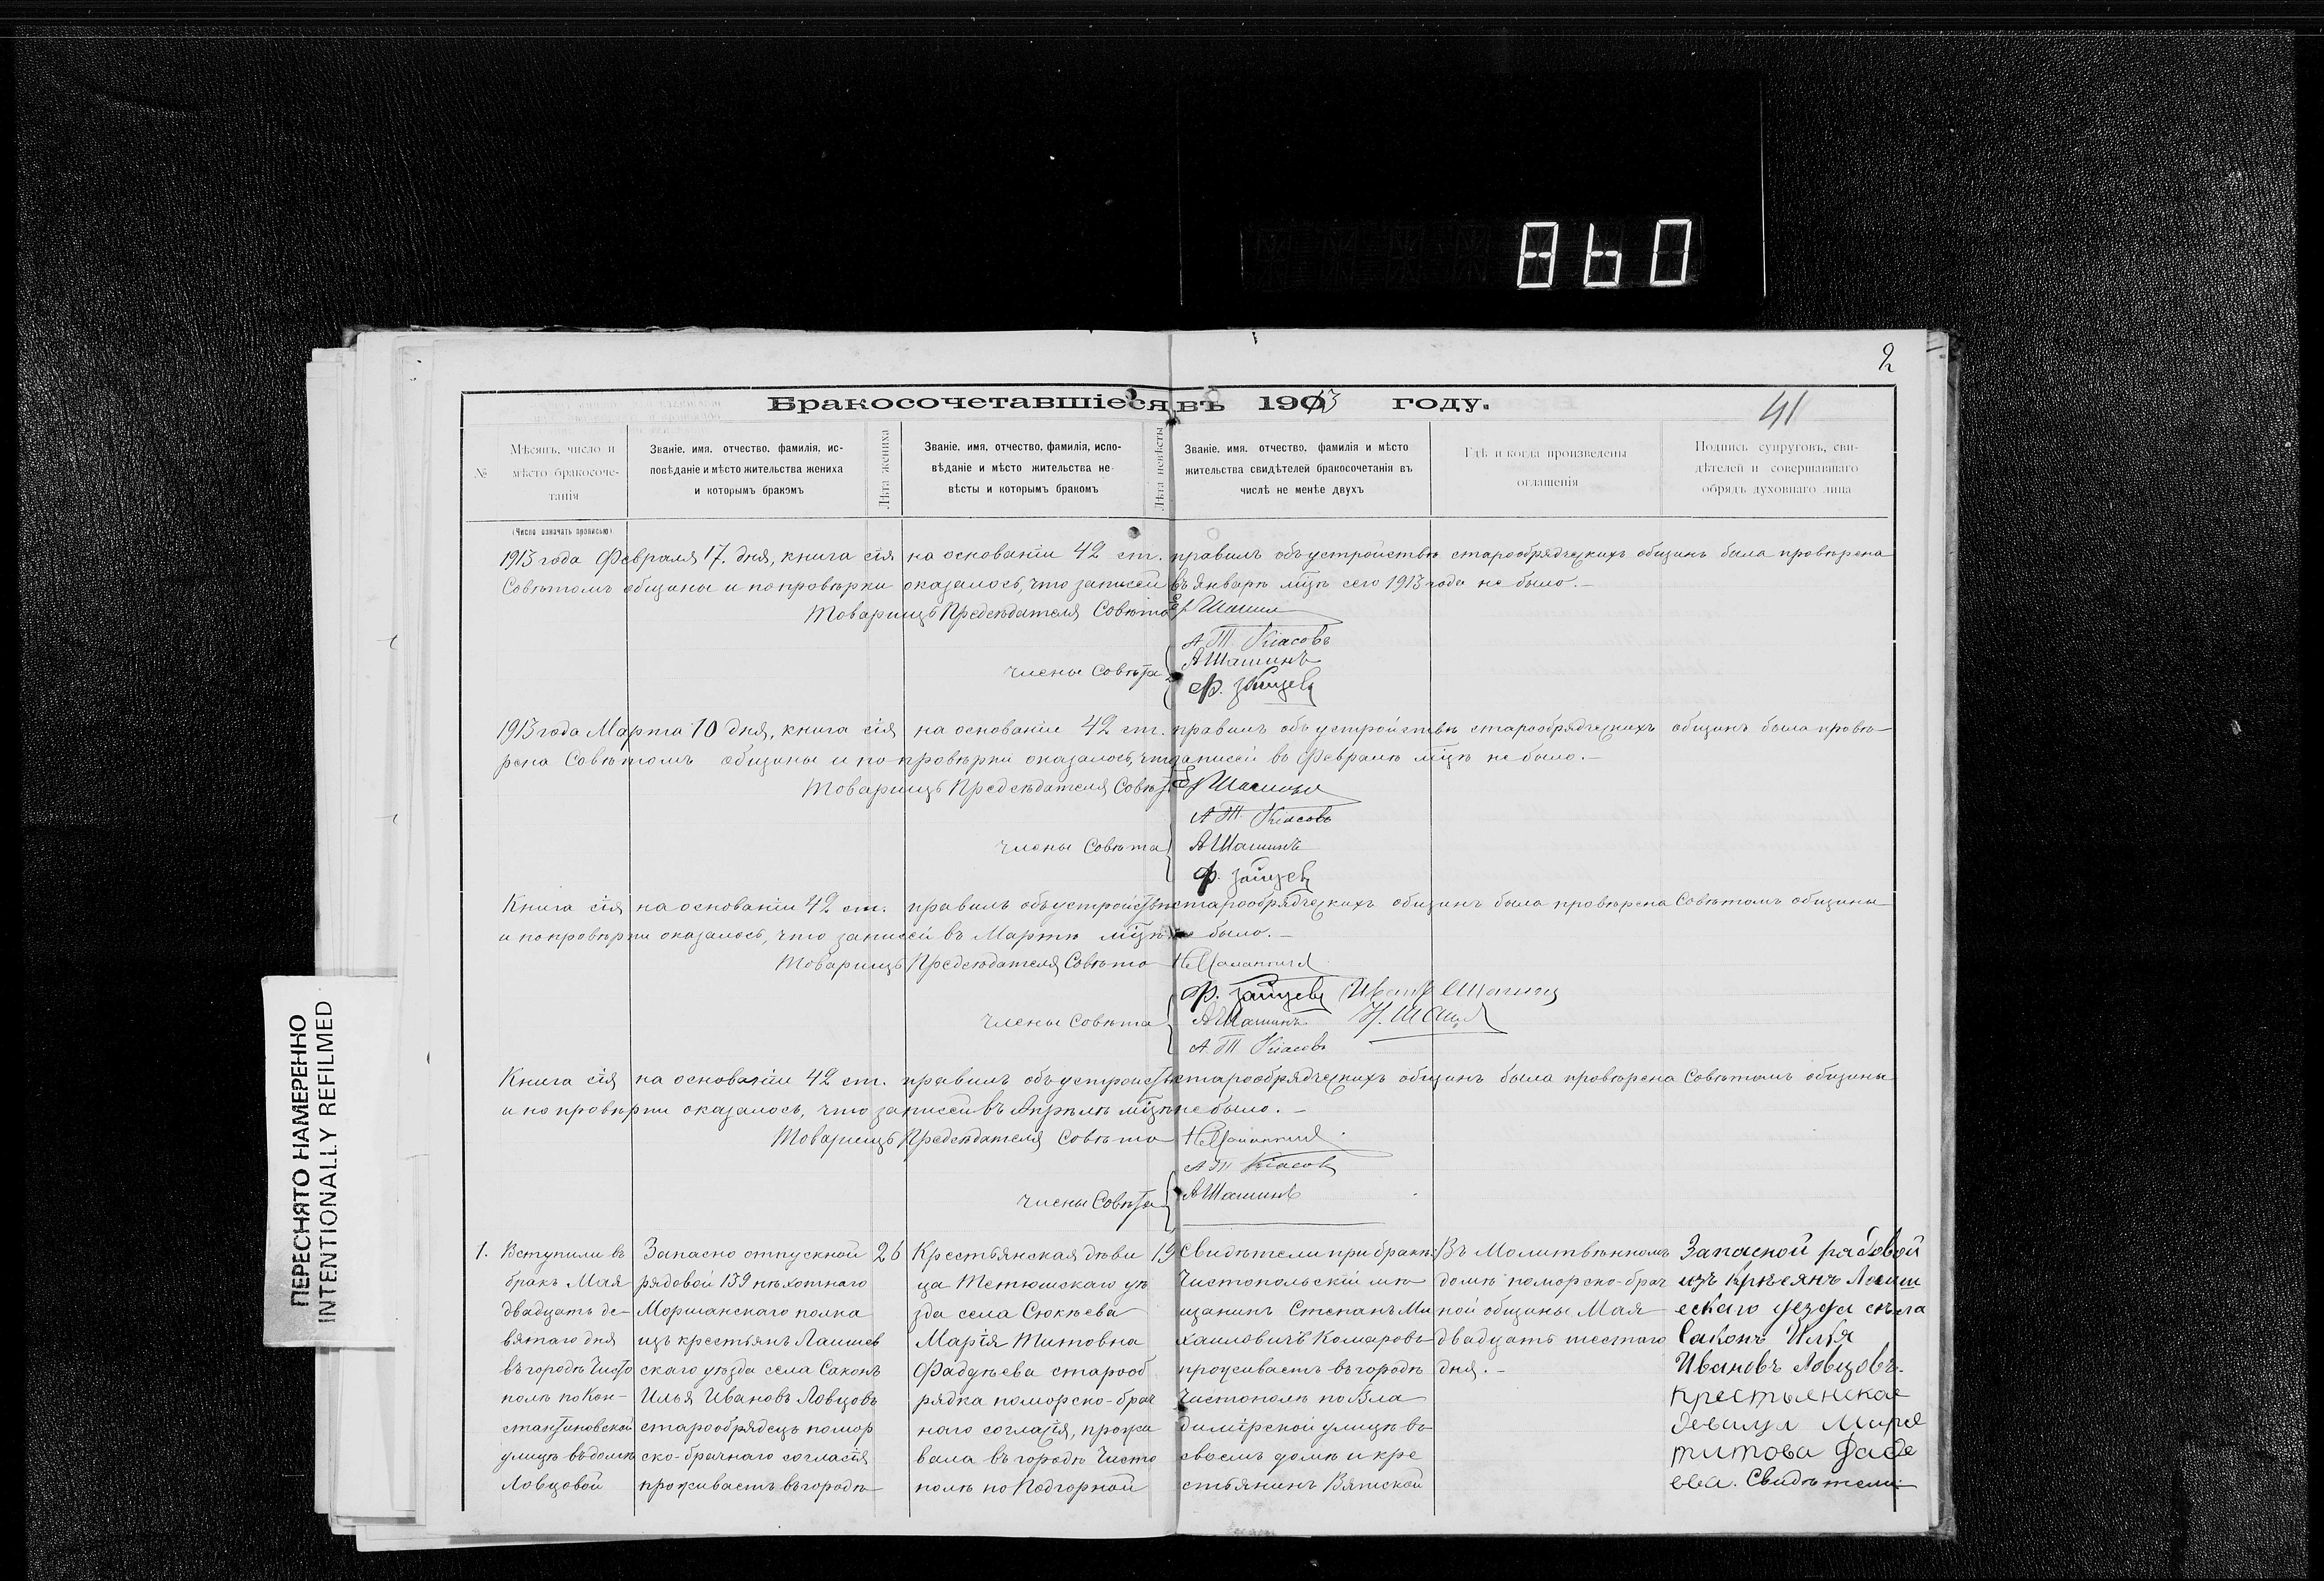 860
2
Бракосочетавшіеся въ 1913 году.
41
№
Мѣсяцъ, число и
мѣсто бракосоче-
танія
(Число означать прописью)
Званіе, имя, отчество, фамилія, ис-
повѣданіе и мѣсто жительства жениха
и которымъ бракомъ
Лѣта жениха
Званіе, имя, отчество, фамилія, испо-
вѣданіе и мѣсто жительства не-
вѣсты и которымъ бракомъ
Лѣта невѣсты
Званіе, имя, отчество, фамилія и мѣсто
жительства свидѣтелей бракосочетанія въ
числѣ не менѣе двухъ
Гдѣ и когда произведены
оглашенія
Подпись супруговъ, сви-
дѣтелей и совершавшаго
обрядъ духовнаго лица
1913 года Февраля 17. дня, книга сія на основаніи 42 ст. правилъ объ устройствѣ старообрядческихъ общинъ была провѣрена
Совѣтомъ общины и по провѣрки оказалось, что записей въ Январѣ мцѣ сего 1913 года не было.-
Товарищъ Предсѣдателя Совѣта
Члены Совѣта
А. Т. Кіасовъ
А Шашинъ
Ф. Зайцев
1913 года Марта 10 дня, книга сія на основаніи 42 ст. правилъ объ устройствѣ старообрядческихъ общинъ была провѣ-
рена Совѣтомъ общины и по провѣрки оказалось, что записей въ Февралѣ мцѣ не было.-
Товарищъ Предсѣдателя Совѣта
Члены Совѣта
А Т. Кіасовъ
А Шашинъ
Ф. Зайцев
Книга сія на основаніи 42 ст. правилъ объ устройствѣ старообрядческихъ общинъ была провѣрена Совѣтомъ общины
и по провѣрки оказалось, что записей въ Мартѣ мцѣ не было.-
Товарищъ Предсѣдателя Совѣта
Члены Совѣта
Ф. Зайцев
А Шашинъ
А. Т. Кіасовъ
Книга сія на основаніи 42 ст. правилъ объ устройствѣ старообрядческихъ общинъ была провѣрена Совѣтомъ общины
и по провѣрки оказалось, что записей въ Апрѣлѣ мцѣ не было.-
Товарищъ Предсѣдателя Совѣта
Члены Совѣта
А Т Кіасов
А Шашинъ
1.
Вступили въ
бракъ Мая
двадцать де-
вятаго дня
въ городѣ Чисто
полѣ по Кон-
стантиновской
улицѣ въ домѣ
Ловцовой
Запасно отпускной
рядовой 139 пѣхотнаго
Моршанскаго полка
изъ крестьянъ Лаишев
скаго уѣзда села Саконъ
Илья Ивановъ Ловцовъ
старообрядецъ помор
ско-брачнаго согласія
проживаетъ въ городѣ
26
Крестьянская дѣви
ца Тетюшскаго уѣ
зда села Сюкѣева
Марія Титовна
Фадѣева старооб
рядка поморско-брач
наго согласія, прожи
вала въ городѣ Чисто
полѣ по Подгорной
19
Свидѣтели при бракѣ:
Чистопольскій мѣ
щанинъ Степанъ Ми
хаиловичъ Комаровъ
проживаетъ въ городѣ
Чистополѣ по Вла
димірской улицѣ въ
своемъ домѣ и кре
стьянинъ Вятской
Въ Молитвѣнномъ
домѣ поморско-брач
ной общины Мая
двадцать шестого
дня.-
Запасной рядовой
изъ крѣсянъ Лаиш
ескаго уезда сѣла
Саконъ Илья
Ивановъ Ловцовъ.
крестьенская
девица Мария
титова Фаде
ева. Свидѣтели:
ПЕРЕСНЯТО НАМЕРЕННО
INTENTIONALLY REFILMED